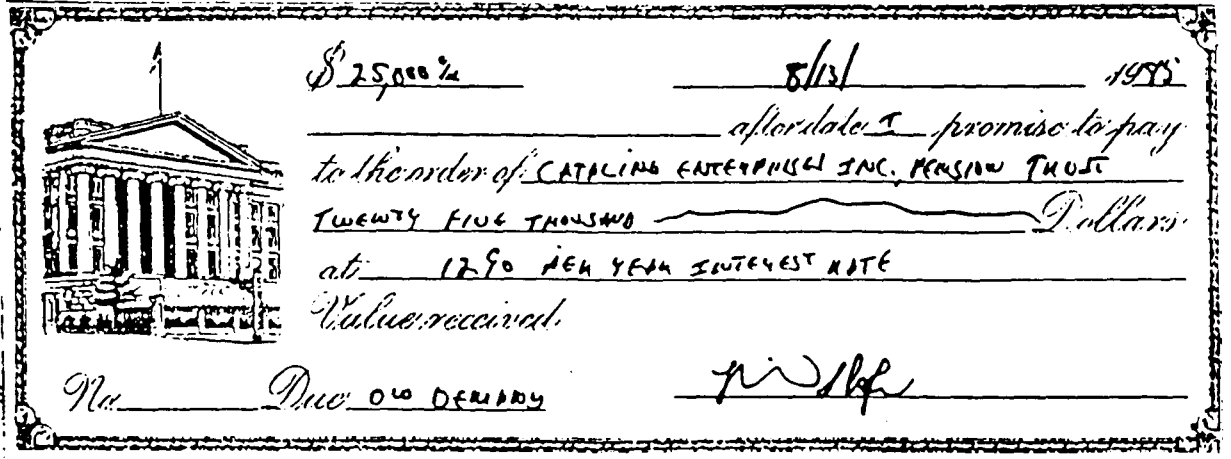 $ 25,000 00/xx 8/13/ 1985
after date I promise to pay
to the order of CATALINA ENTERPRISES INC. PENSION TRUST
TWENTY FIVE THOUSAND Dollars
at 12% PER YEAR INTEREST RATE
Value received
No. Due ON DEMAND